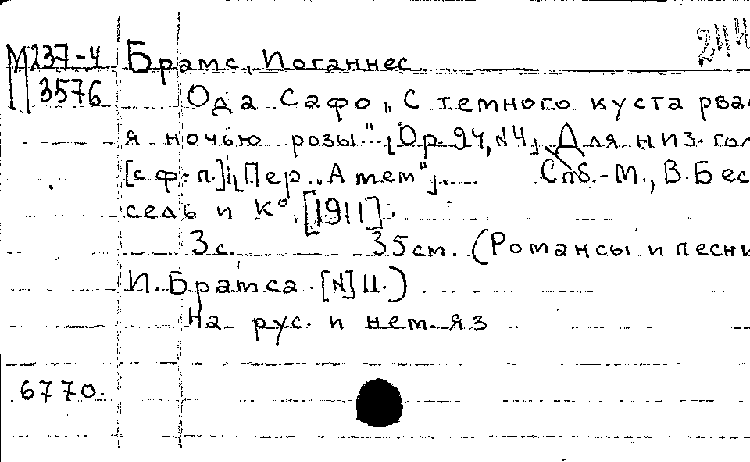 244
М237-4 Брамс, Иоганнес.
3576 Ода Сафо "С темного куста рва
я ночью розы". [Ор. 94, №4]. Для низ. гол
[с ф.-п.]. [Пер. "Амет"]. Спб.-М., В. Бес
сель и К° [1911].
3с. 35см. (Романсы и песни
И. Брамса. [№] 11.)
На рус. и нем. яз
6770.